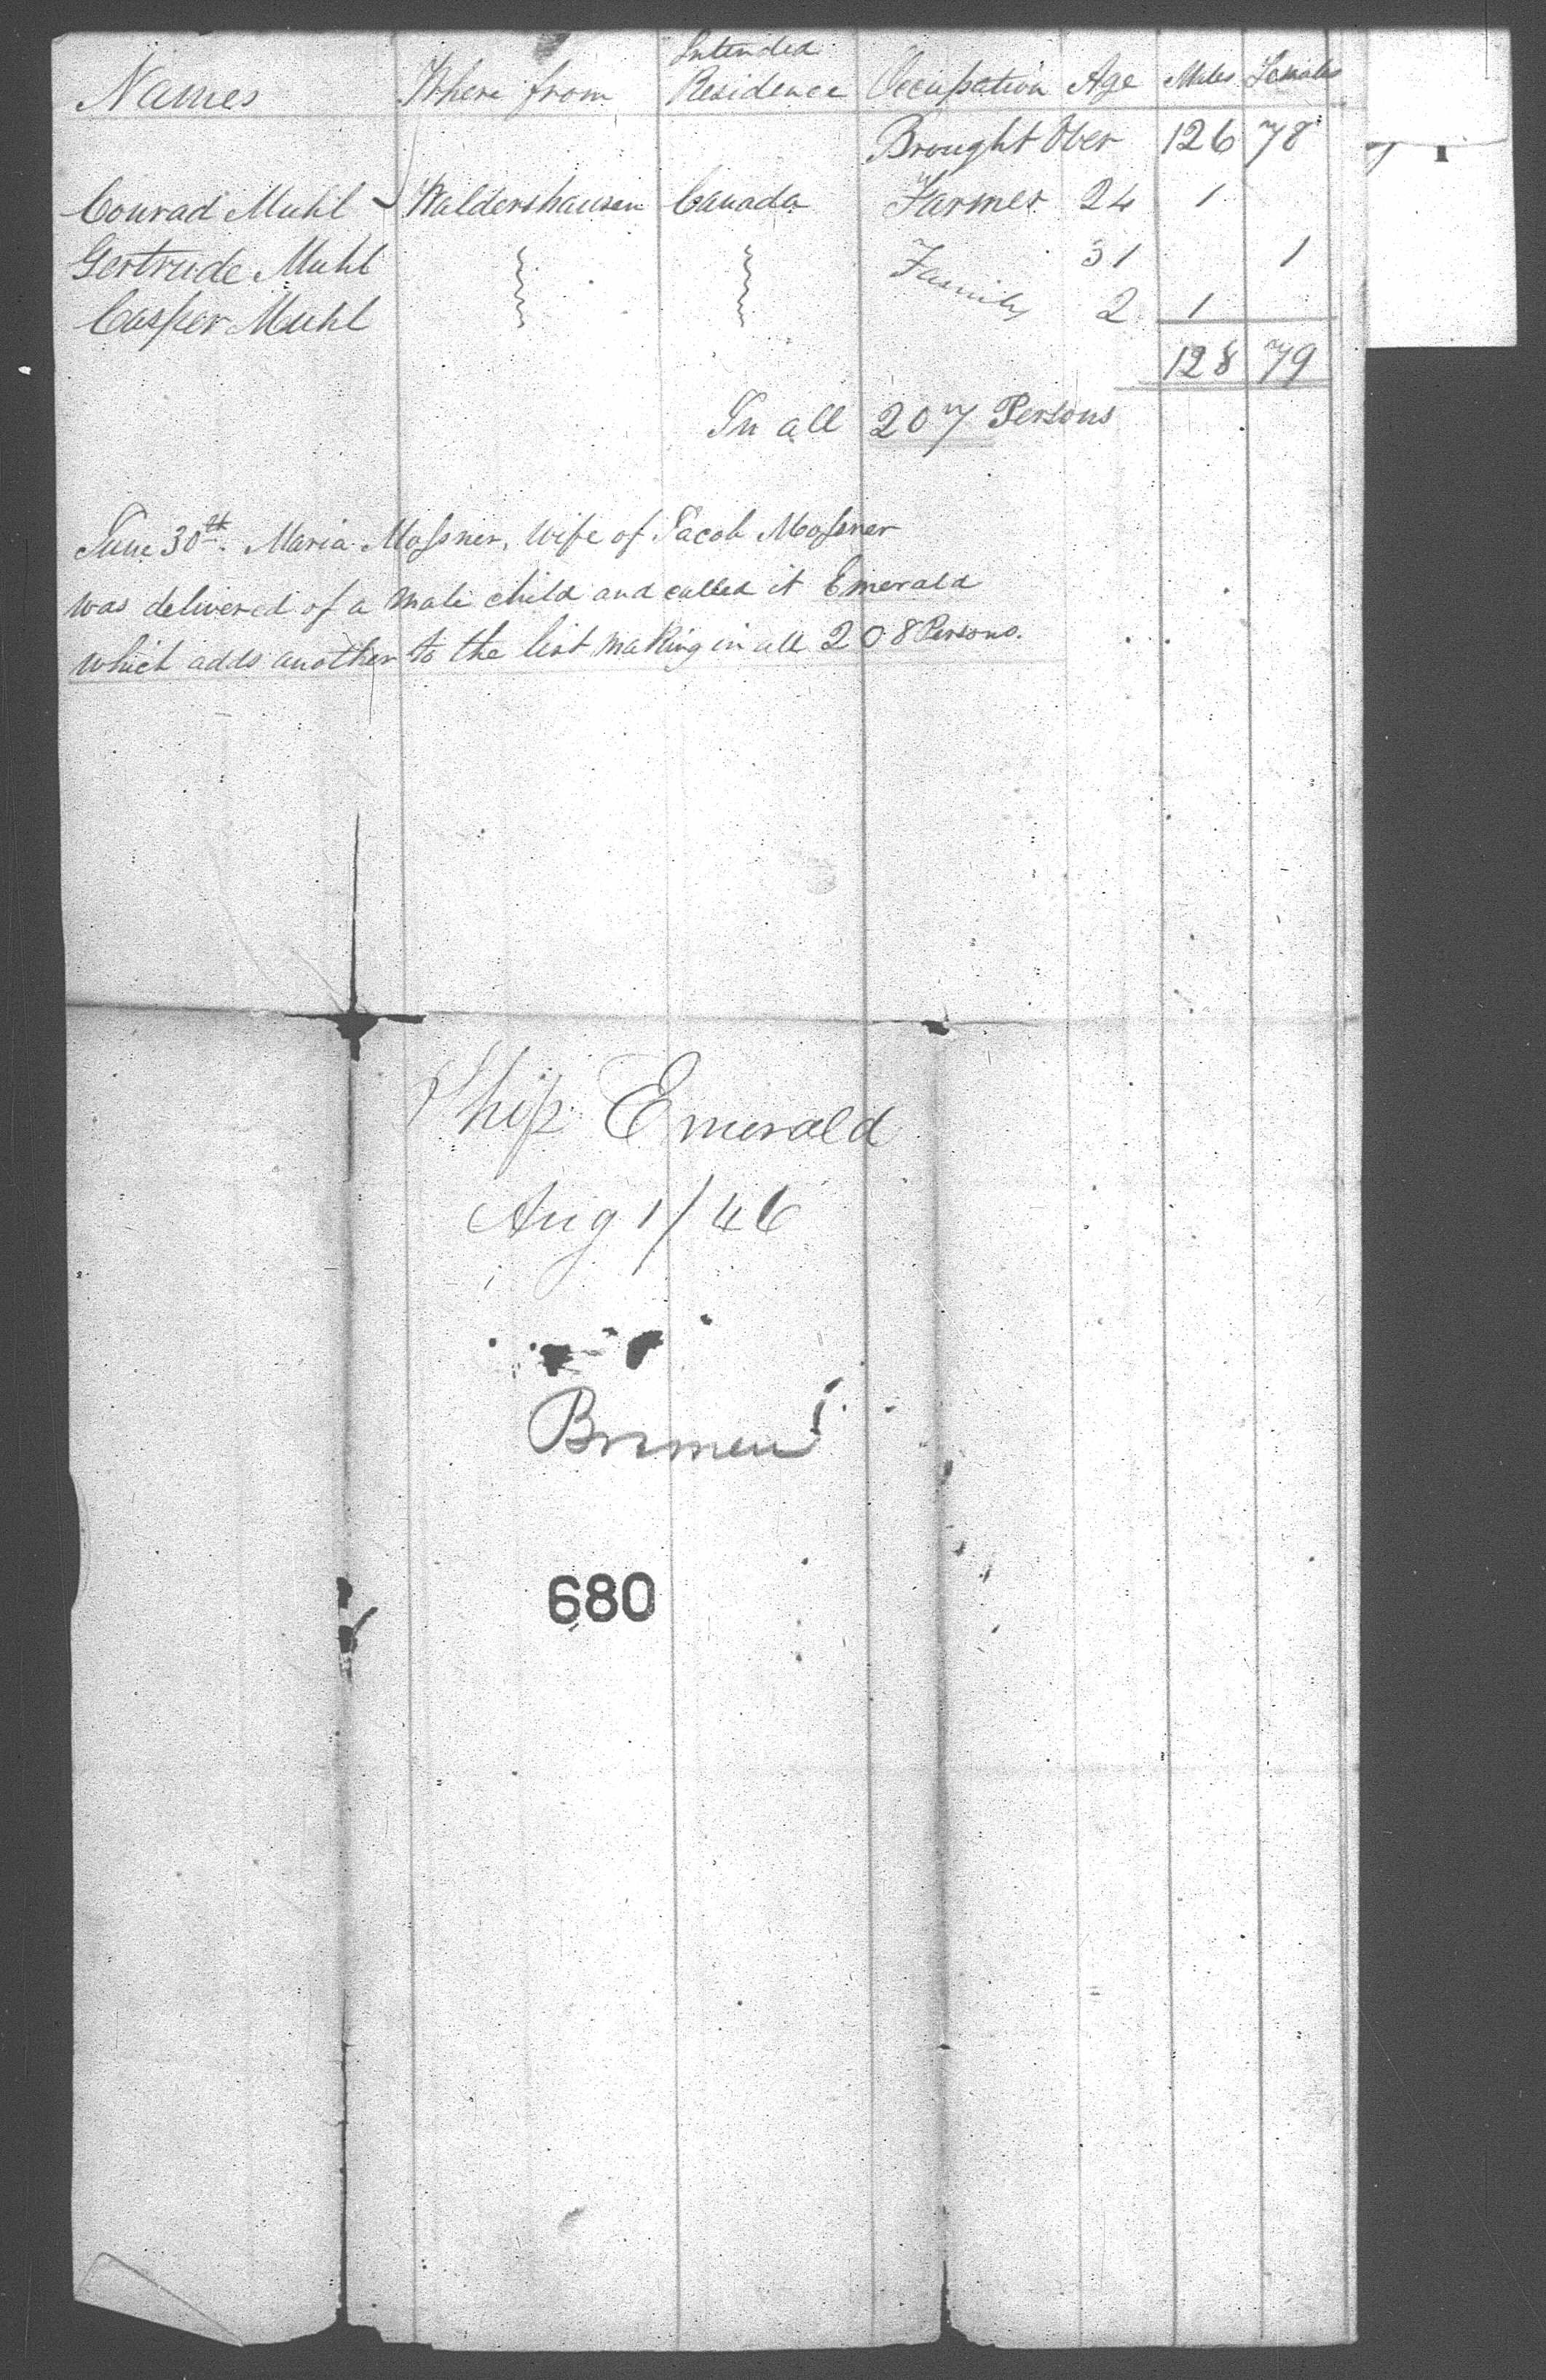 Names Where from Intended Residence Occupation Age Males Females
Brought Over 126 78
Conrad Muhl Waldershausen Canada Farmer 24 1
Gertrude Muhl Family 31 1
Casper Muhl 2 1
128 79
In all 207 Persons
June 30th. Maria Mossner, Wife of Jacob Mossner
was delivered of a male child and called it Emerald
which adds another to the list making in all 208 Persons.
Ship Emerald
Aug 1/46
Bremen
680